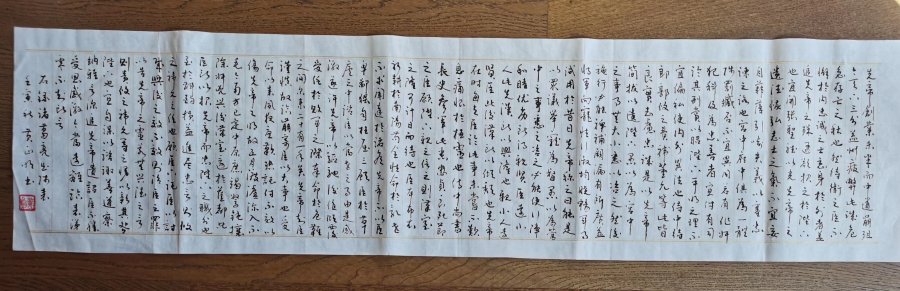 先帝創業未半而中道崩殂
今天下三分益州疲弊此誠危
急存亡之秋也然侍衛之臣不
懈於內忠誠之士忘身於外者蓋
追先帝之殊遇欲報之於陛下
也誠宜開張聖聽以光先帝
遺德恢弘志士之氣不宜妄
自菲薄引喻失義以塞忠
諫之路也宮中府中俱為一體
陟罰臧否不宜異同若有作奸
犯科及為忠善者宜付有司
論其刑賞以昭陛下平明之理不
宜偏私使內外異法也侍中侍
郎郭攸之費禕董允等此皆
良實志慮忠純是以先帝
簡拔以遺陛下愚以為宮中
之事事無大小悉以咨之然後
施行必能裨補闕漏有所廣益
將軍向寵性行淑均曉暢軍事
試用於昔日先帝稱之曰能是
以眾議舉寵為督愚以為營
中之事悉以咨之必能使行陣
和睦優劣得所親賢臣遠小
人此先漢所以興隆也親小人遠
賢臣此後漢所以傾頹也先帝
在時每與臣論此事未嘗不歎
息痛恨於桓靈也侍中尚書
長史參軍此悉貞良死節
之臣願陛下親之信之則漢室
之隆可計日而待也臣本布衣
躬耕於南陽苟全性命於亂世
不求聞達於諸侯先帝不以臣
卑鄙猥自枉屈三顧臣於草
廬之中諮臣以當世之事由是感
激遂許先帝以驅馳後值傾覆
受任於敗軍之際奉命於危難
之間爾來二十有一年矣先帝知臣
謹慎故臨崩寄臣以大事也受
命以來夙夜憂歎恐託付不效以
傷先帝之明故五月渡瀘深入不
毛今南方已定
中原庶竭駑鈍攘
除奸凶興復漢室還於舊都此
臣所以報先帝而忠陛下之職分也
至於斟酌損益進盡忠言則攸
之禕允之任也願陛下託臣以討
賊興復之效不效則治臣之罪
以告先帝之靈若無興德之言
則責攸之禕允等之慢以彰其咎
陛下亦宜自謀以諮諏善道察
納雅言深追先帝遺詔臣不勝
受恩感激今當遠離臨表涕
零不知所云
右錄諸葛亮出師表
壬寅秋 黃山 書